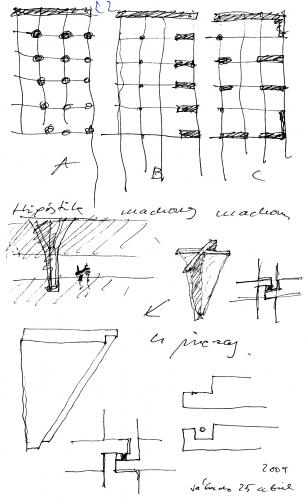 A
B
C
Hipóstila machones machones
piezas
2009
sábado 25 abril